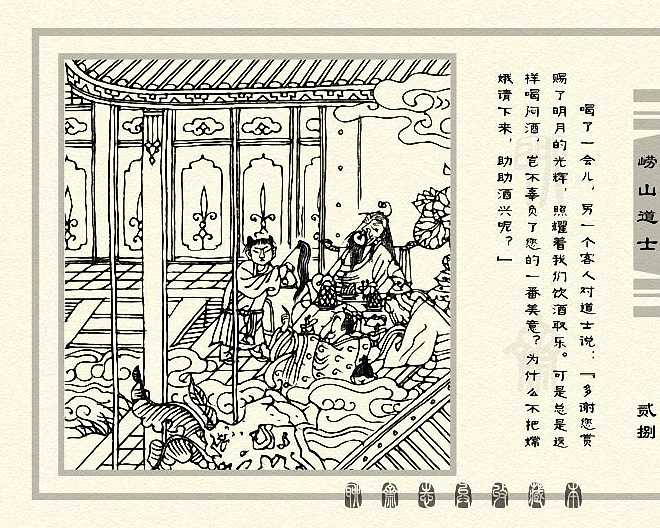 喝了一会儿，另一个客人对道士说：“多谢您赏
赐了明月的光辉，照耀着我们饮酒取乐。可是总是这
样喝闷酒，岂不辜负了您的一番美意？为什么不把嫦
娥请下来，助助酒兴呢？”
崂山道士
贰捌